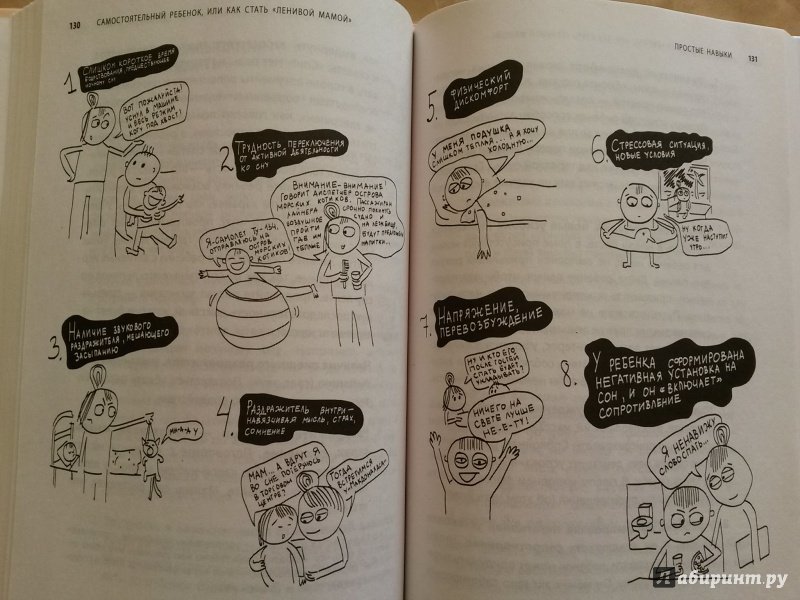 130 САМОСТОЯТЕЛЬНЫЙ РЕБЕНОК, ИЛИ КАК СТАТЬ «ЛЕНИВОЙ МАМОЙ»
1 СЛИШКОМ КОРОТКОЕ ВРЕМЯ
БОДРСТВОВАНИЯ, ПРЕДШЕСТВУЮЩЕЕ
НОЧНОМУ СНУ
ВОТ ПОЖАЛУЙСТА!
УСНУЛ В МАШИНЕ
И ВЕСЬ РЕЖИМ
КОТУ ПОД ХВОСТ!
2 ТРУДНОСТЬ ПЕРЕКЛЮЧЕНИЯ
ОТ АКТИВНОЙ ДЕЯТЕЛЬНОСТИ
КО СНУ
Я-САМОЛЕТ ТУ-134,
ОТПРАВЛЯЮСЬ НА
ОСТРОВ
МОРСКИХ
КОТИКОВ!
ВНИМАНИЕ-ВНИМАНИЕ!
ГОВОРИТ ДИСПЕТЧЕР ОСТРОВА
МОРСКИХ КОТИКОВ. ПАССАЖИРАМ
ЛАЙНЕРА СРОЧНО ПОКИНУТЬ
ВОЗДУШНОЕ СУДНО И
ПРОЙТИ НА ЛЕЖБИЩЕ
ТАМ ИМ БУДУТ ПРЕДЛОЖЕНЫ
ТЕПЛЫЕ НАПИТКИ...
3. НАЛИЧИЕ ЗВУКОВОГО
РАЗДРАЖИТЕЛЯ, МЕШАЮЩЕГО
ЗАСЫПАНИЮ
МЯ-А-А-У
4. РАЗДРАЖИТЕЛЬ ВНУТРИ-
НАВЯЗЧИВАЯ МЫСЛЬ, СТРАХ,
СОМНЕНИЕ
МАМ... А ВДРУГ Я
ВО СНЕ ПОТЕРЯЮСЬ
В ТОРГОВОМ
ЦЕНТРЕ?
ТОГДА
ВСТРЕТИМСЯ
У МАКДОНАЛЬДСА
ПРОСТЫЕ НАВЫКИ 131
5. ФИЗИЧЕСКИЙ
ДИСКОМФОРТ
У МЕНЯ ПОДУШКА
СЛИШКОМ ТЕПЛАЯ... А Я ХОЧУ
ХОЛОДНУЮ...
6. СТРЕССОВАЯ СИТУАЦИЯ,
НОВЫЕ УСЛОВИЯ
НУ КОГДА
УЖЕ НАСТУПИТ
УТРО...
7. НАПРЯЖЕНИЕ,
ПЕРЕВОЗБУЖДЕНИЕ
НУ И КТО ЕГО
ПОСЛЕ ГОСТЕЙ
СПАТЬ БУДЕТ
УКЛАДЫВАТЬ?
НИЧЕГО НА
СВЕТЕ ЛУЧШЕ
НЕ-Е-ТУ!
8. У РЕБЕНКА СФОРМИРОВАНА
НЕГАТИВНАЯ УСТАНОВКА НА
СОН, И ОН «ВКЛЮЧАЕТ»
СОПРОТИВЛЕНИЕ
Я НЕНАВИЖУ
СЛОВО СПАТЬ...
Лабиринт.ру